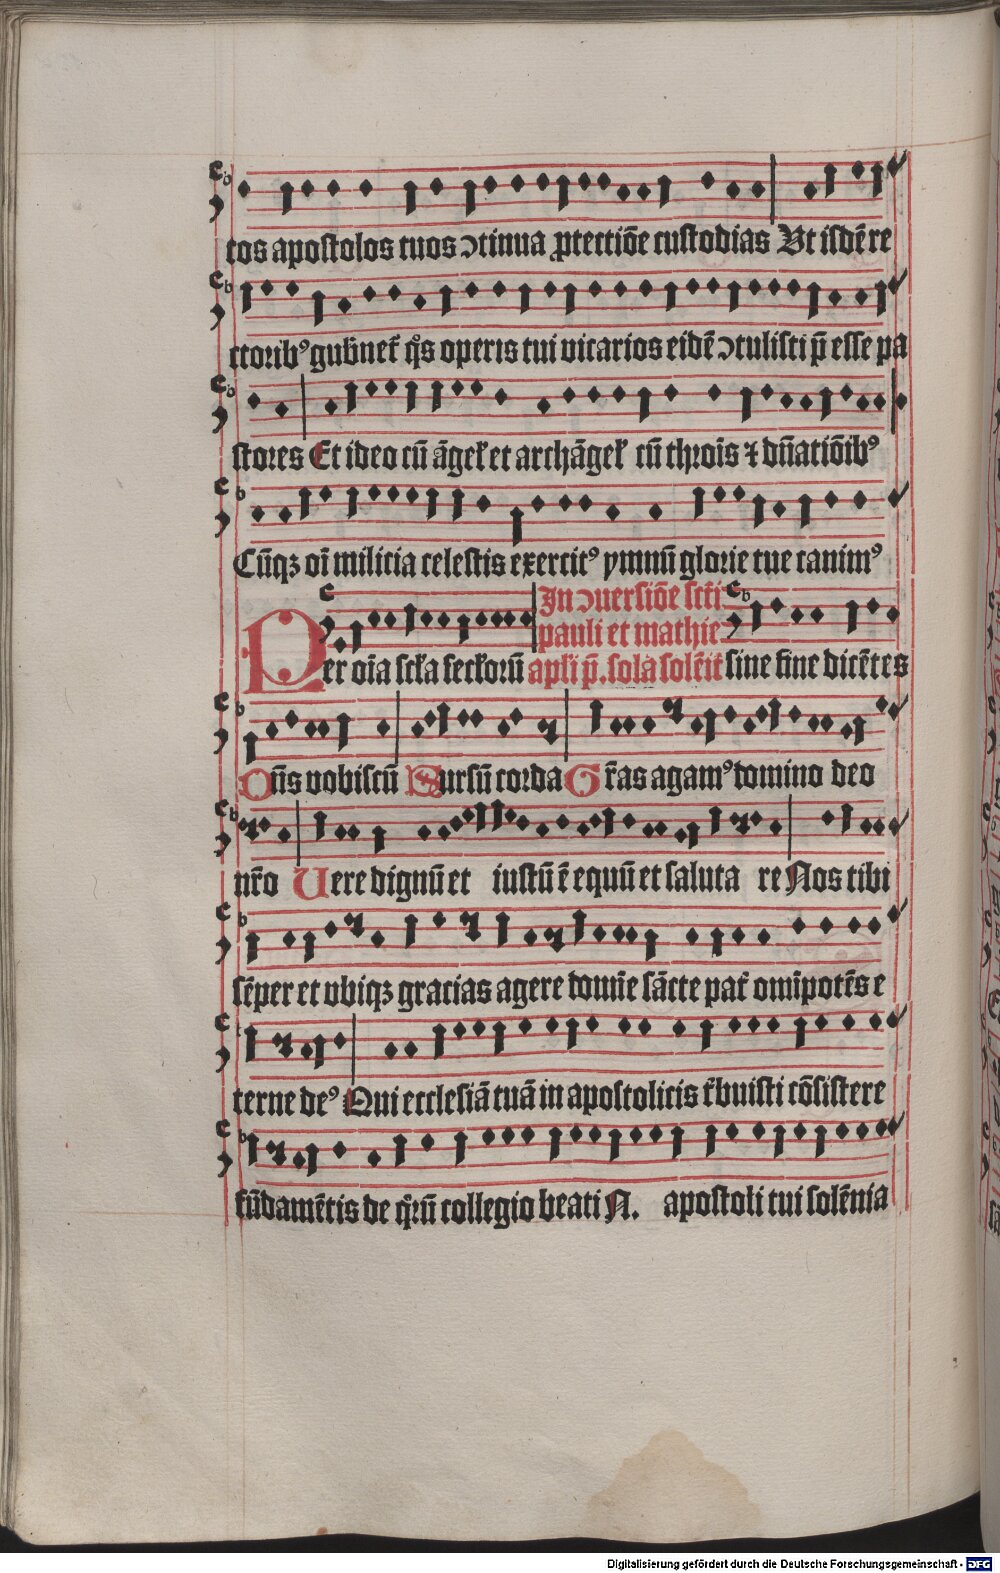 tos apostolos tuos ↄtinua ꝓtectiōe custodias Vt isdē re
ctoribꝰ gub̄net᷑ q̊s operis tui vicarios eidē ↄtulisti p̄ esse pa
stores Et ideo cū āgeƚ et archāgeƚ cū thrōis ⁊ dn̄atiōibꝰ
Cūqꝫ oī milicia celestis exercitꝰ ymnū glorie tue canimꝰ
In ↄuersiōe scti
pauli et mathie
Per oīa scƚa secƚorū apƚi p̄. sola solēit᷑ sine fine dicētes
Dn̄s vobiscū Sursū corda Gr̄as agamꝰ domino deo
nr̄o Uere dignū et iustū ē equū et saluta re Nos tibi
sēper et vbiqꝫ gracias agere domīe sācte pat᷑ omīpotēs e
terne deꝰ Qui ecclesiā tuā in apostolicis t᷑buisti cōsistere
fūdamētis de q̊rū collegio beati N. apostoli tui solēnia
Digitalisierung gefördert durch die Deutsche Forschungsgemeinschaft - DFG